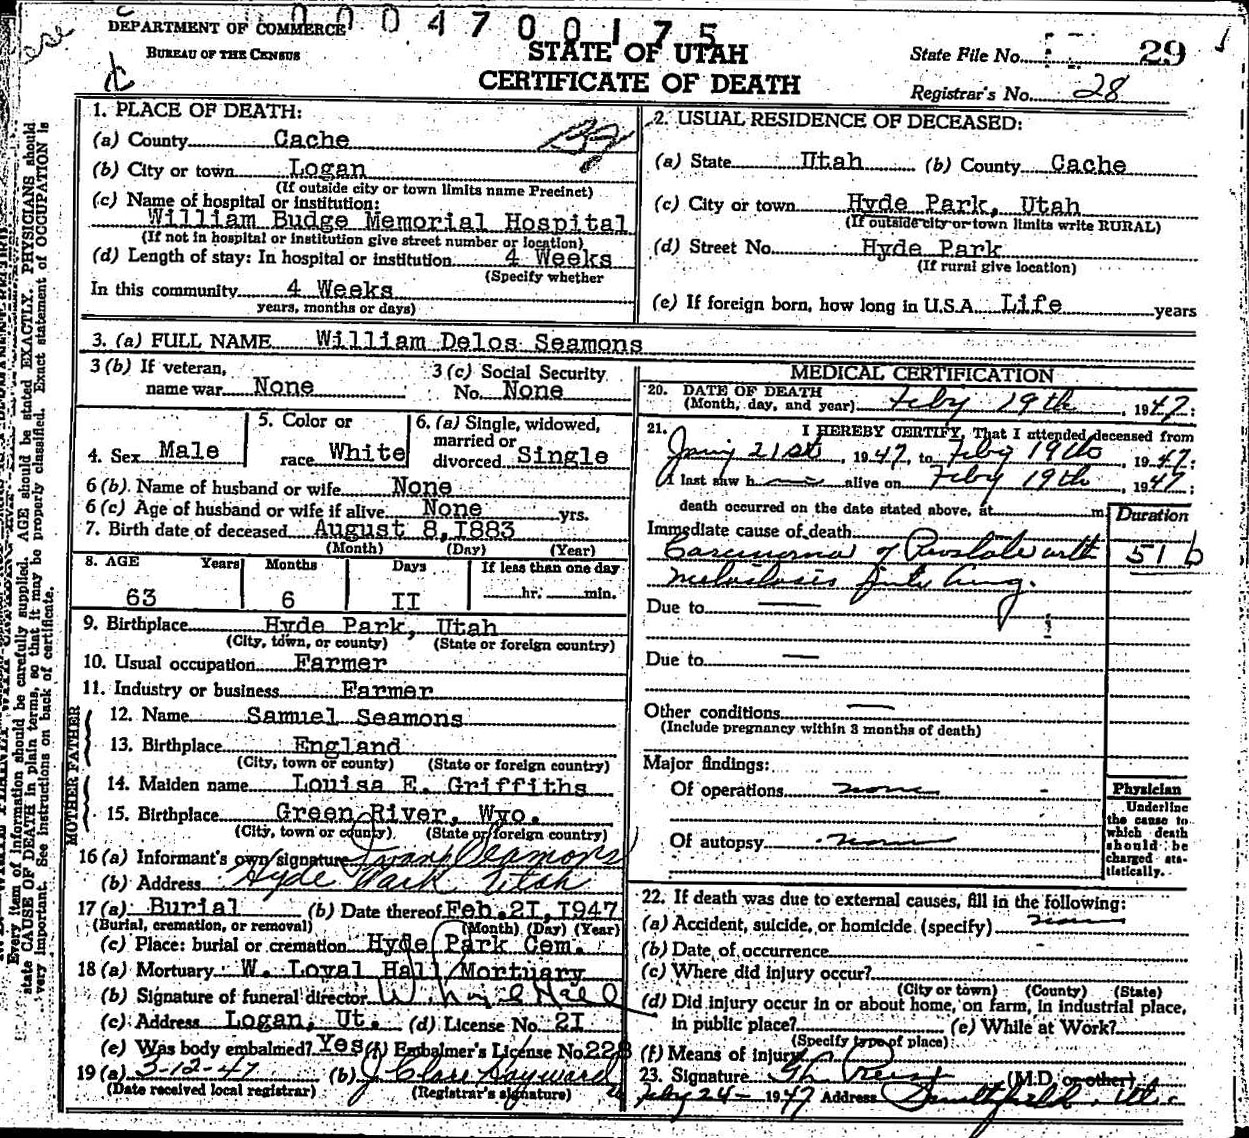 DEPARTMENT OF COMMERCE
BUREAU OF THE CENSUS
0004700175
STATE OF UTAH
CERTIFICATE OF DEATH
State File No. 29
Registrar's No. 28
1. PLACE OF DEATH:
(a) County Cache
(b) City or town Logan
(If outside city or town limits name Precinct)
(c) Name of hospital or institution:
William Budge Memorial Hospital
(If not in hospital or institution give street number or location)
(d) Length of stay: In hospital or institution 4 Weeks
(Specify whether
In this community 4 Weeks
years, months or days)
2. USUAL RESIDENCE OF DECEASED:
(a) State Utah (b) County Cache
(c) City or town Hyde Park, Utah
(If outside city or town limits write RURAL)
(d) Street No. Hyde Park
(If rural give location)
(e) If foreign born, how long in U.S.A. Life years
3. (a) FULL NAME William Delos Seamons
3 (b) If veteran, name war None
3 (c) Social Security No. None
4. Sex Male
5. Color or race White
6. (a) Single, widowed, married or divorced Single
6 (b). Name of husband or wife None
6 (c) Age of husband or wife if alive None yrs.
7. Birth date of deceased August 8, I883
(Month) (Day) (Year)
8. AGE Years Months Days If less than one day
63 6 II hr. min.
9. Birthplace Hyde Park, Utah
(City, town, or county) (State or foreign country)
10. Usual occupation Farmer
11. Industry or business Farmer
FATHER
12. Name Samuel Seamons
13. Birthplace England
(City, town or county) (State or foreign country)
MOTHER
14. Maiden name Louisa E. Griffiths
15. Birthplace Green River, Wyo.
(City, town or county) (State or foreign country)
16 (a) Informant's own signature Seamons
(b) Address Hyde Park Utah
17 (a) Burial (b) Date thereof Feb. 2I, I947
(Burial, cremation, or removal) (Month) (Day) (Year)
(c) Place: burial or cremation Hyde Park Cem.
18 (a) Mortuary W. Loyal Hall Mortuary
(b) Signature of funeral director W. Loyal Hall
(c) Address Logan, Ut. (d) License No. 2I
(e) Was body embalmed? Yes (f) Embalmer's License No. 228
19 (a) 3-12-47 (b) J Clare Hayward
(Date received local registrar) (Registrar's signature)
MEDICAL CERTIFICATION
20. DATE OF DEATH
(Month, day, and year) Feby 19th, 1947:
21. I HEREBY CERTIFY, That I attended deceased from
21st, 1947, to Feby 19th, 1947:
I last saw h alive on Feby 19th, 1947;
death occurred on the date stated above, at m
Duration
Immediate cause of death
Carcinoma of Prostate with 51 b
Due to —
Due to —
Other conditions —
(Include pregnancy within 3 months of death)
Major findings:
Of operations none
Of autopsy none
Physician
Underline
the cause to
which death
should be
charged sta-
tistically.
22. If death was due to external causes, fill in the following:
(a) Accident, suicide, or homicide (specify) none
(b) Date of occurrence -
(c) Where did injury occur?
(City or town) (County) (State)
(d) Did injury occur in or about home, on farm, in industrial place,
in public place? (e) While at Work?
(Specify type of place)
(f) Means of injury
23. Signature (M.D. or other)
Feby 24 - 1947 Address Smithfield, Ut.
Every item of information should be carefully supplied. AGE should be stated EXACTLY. PHYSICIANS should
state CAUSE OF DEATH in plain terms, so that it may be properly classified. Exact statement of OCCUPATION is
very important. See instructions on back of certificate.